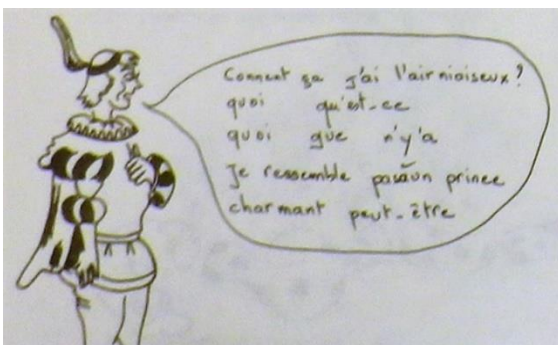 Comment ça j'ai l'air niaiseux?
quoi qu'est-ce
quoi que n'y'a
Je ressemble pas à un prince
charmant peut-être